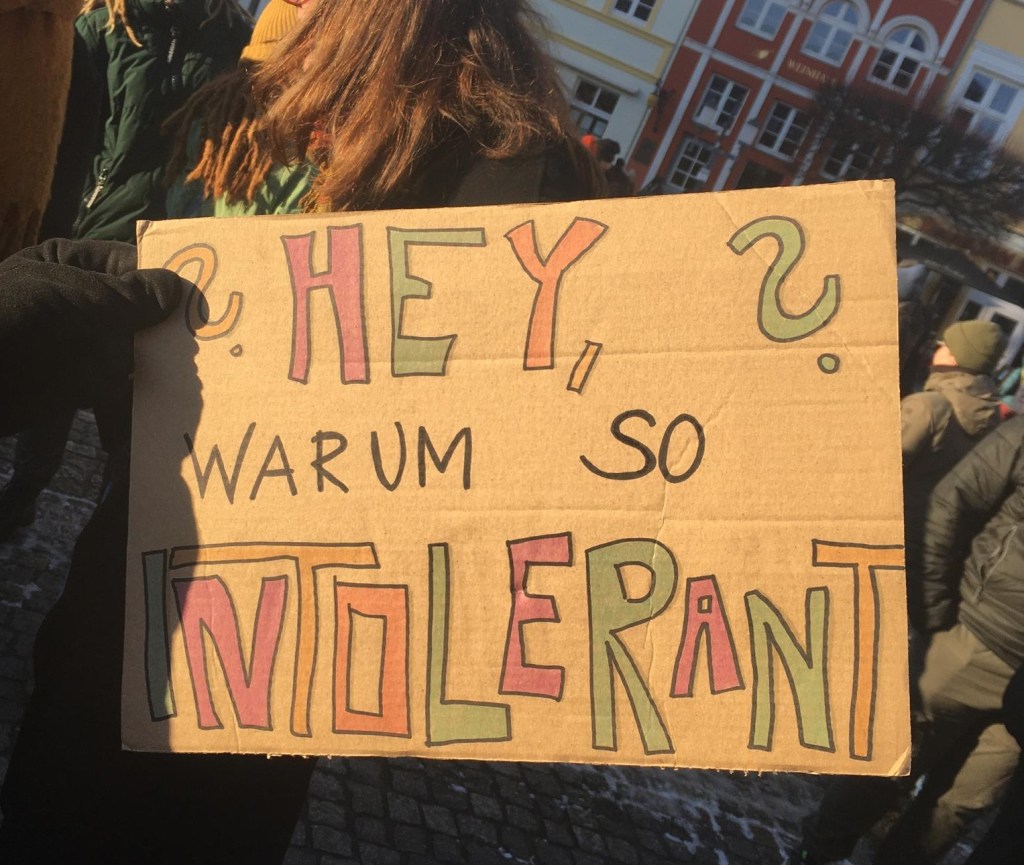 ? HEY, ?
WARUM SO
INTOLERANT